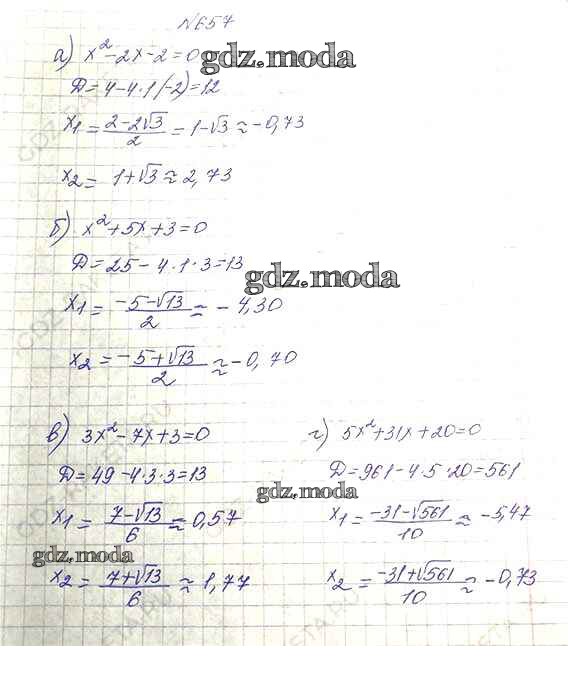 №657
а) x² - 2x - 2 = 0
gdz.moda
Д = 4 - 4·1·(-2) = 12
x₁ = (2 - 2√3)/2 = 1 - √3 ≈ -0,73
x₂ = 1 + √3 ≈ 2,73
б) x² + 5x + 3 = 0
Д = 25 - 4·1·3 = 13
gdz.moda
x₁ = (-5 - √13)/2 ≈ -4,30
x₂ = (-5 + √13)/2 ≈ -0,70
в) 3x² - 7x + 3 = 0
Д = 49 - 4·3·3 = 13
x₁ = (7 - √13)/6 ≈ 0,57
gdz.moda
x₂ = (7 + √13)/6 ≈ 1,77
г) 5x² + 31x + 20 = 0
Д = 961 - 4·5·20 = 561
gdz.moda
x₁ = (-31 - √561)/10 ≈ -5,47
x₂ = (-31 + √561)/10 ≈ -0,73